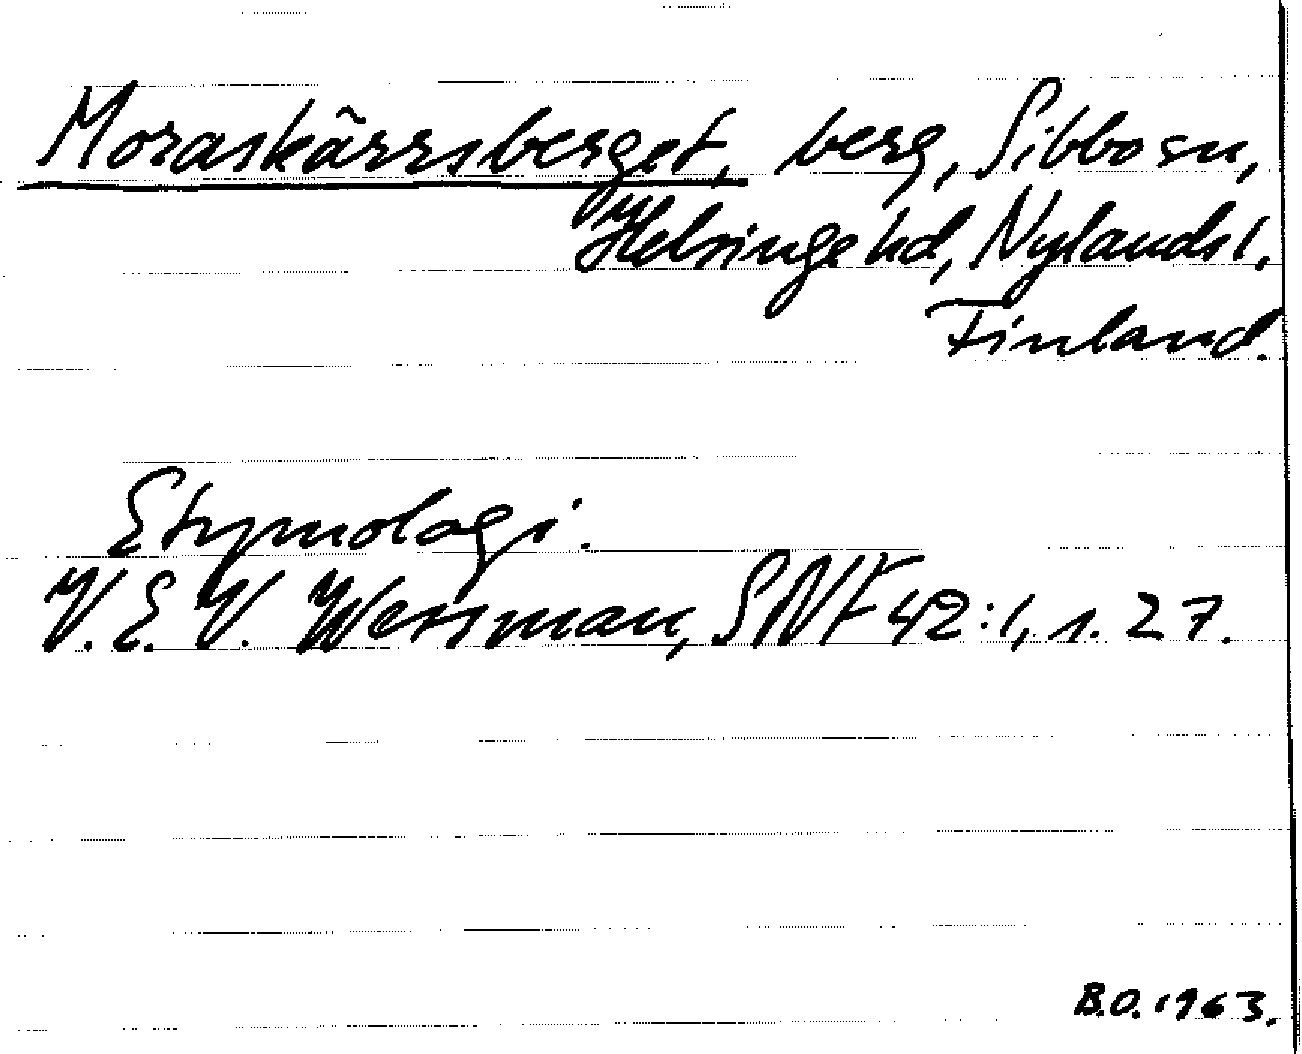 Moraskärrsberget, berg, Sibbo sn,
Helsinge hd, Nylands l.
Finland.
Etymologi.
V. E. V. Wessman, SNF 42:1, s. 27.
B.O. 1963.